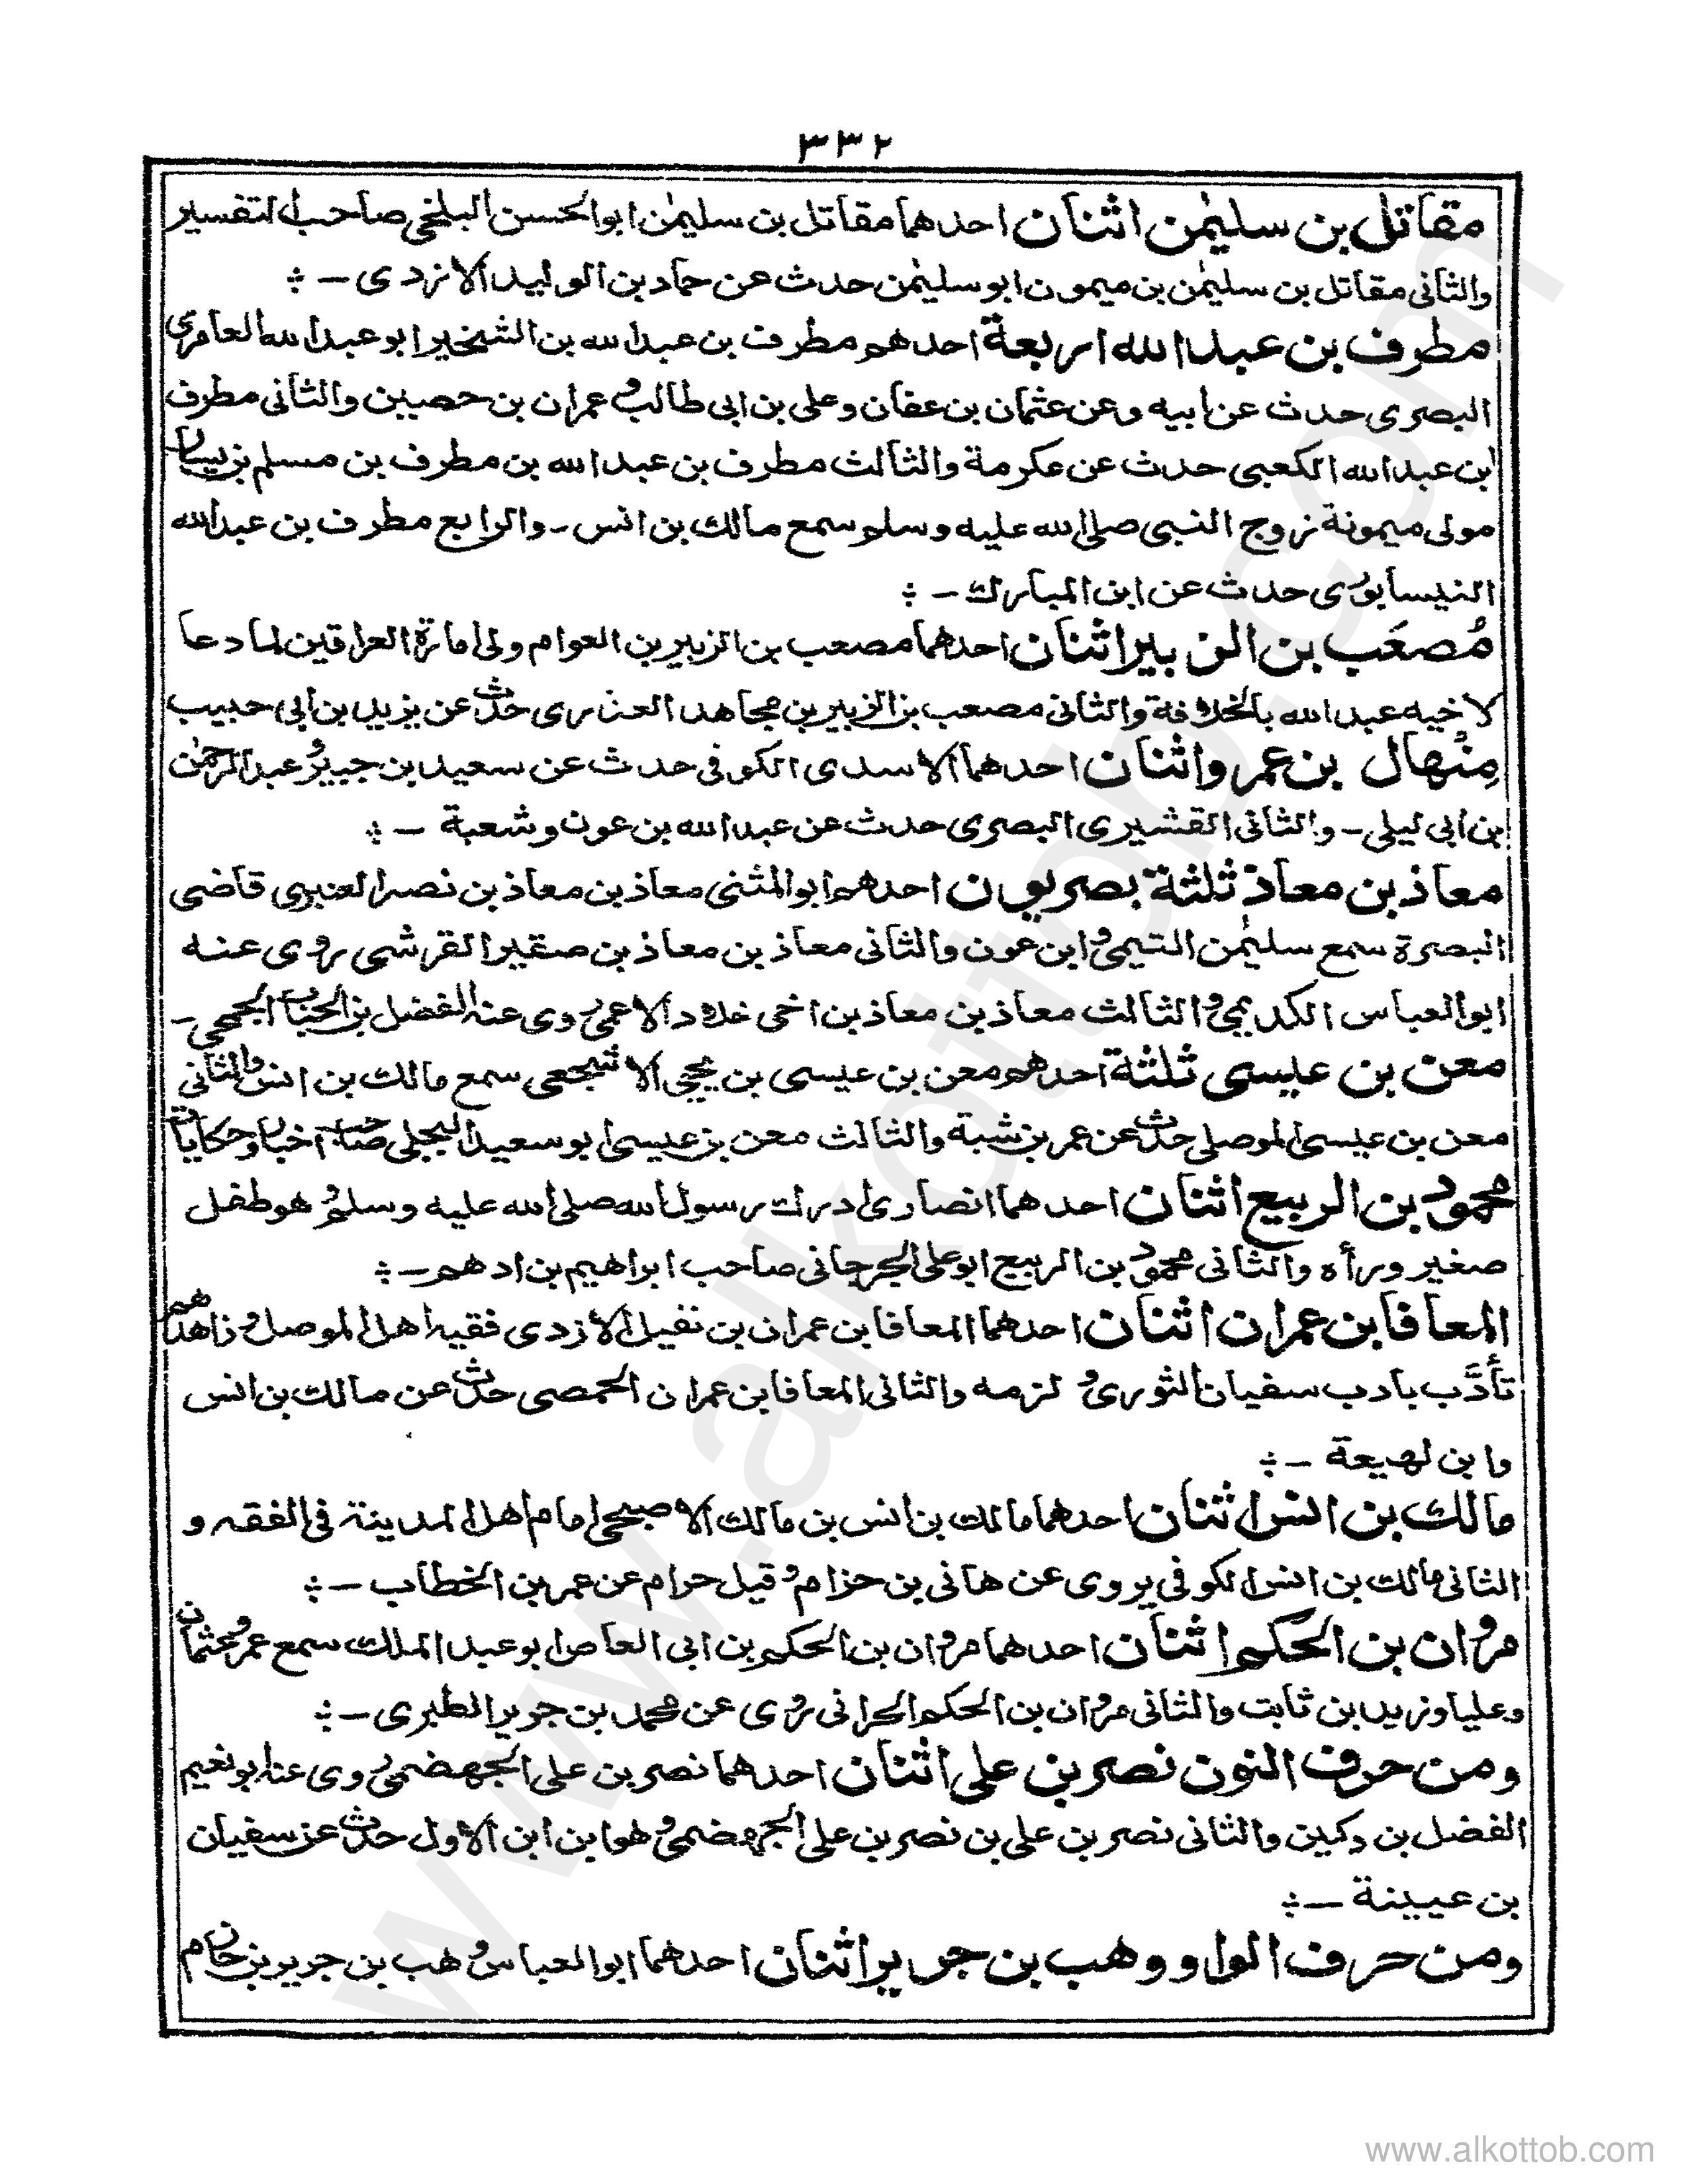 ٣٣٢
مقاتل بن سليمٰن اثنان احدهما مقاتل بن سليمٰن ابو الحسن البلخي صاحب التفسير
والثاني مقاتل بن سليمٰن بن ميمون ابو سليمٰن حدث عن حماد بن الوليد الازدي -
مطرف بن عبد الله اربعة احدهم مطرف بن عبد الله بن الشخير ابو عبد الله العامري
البصري حدث عن ابيه وعن عثمان بن عفان وعلي بن ابي طالب و عمران بن حصين والثاني مطرف
ابن عبد الله الكعبي حدث عن عكرمة والثالث مطرف بن عبد الله بن مطرف بن مسلم بن يسار
مولى ميمونة زوج النبي صلى الله عليه وسلم سمع مالك بن انس - والرابع مطرف بن عبد الله
النيسابوري حدث عن ابن المبارك -
مُصعَب بن الزبير اثنان احدهما مصعب بن الزبير بن العوام ولى امارة العراقين لما دعا
لاخيه عبد الله بالخلافة والثاني مصعب بن الزبير بن مجاهد العذري حدث عن يزيد بن ابي حبيب
مِنْهال بن عمرو اثنان احدهما الاسدي الكوفي حدث عن سعيد بن جبير و عبد الرحمٰن
بن ابي ليلى - والثاني القشيري البصري حدث عن عبد الله بن عون وشعبة -
معاذ بن معاذ ثلثة بصريون احدهم ابو المثنى معاذ بن معاذ بن نصر العنبري قاضي
البصرة سمع سليمٰن التيمي و ابن عون والثاني معاذ بن معاذ بن صقير القرشي روى عنه
ابو العباس الكديمي و الثالث معاذ بن معاذ بن اخي خلاد الاعمى روى عنه الفضل بن الحباب الجمحي -
معن بن عيسى ثلثة احدهم معن بن عيسى بن يحيى الاشجعي سمع مالك بن انس والثاني
معن بن عيسى الموصلي حدث عن عمر بن شبة والثالث معن بن عيسى ابو سعيد البجلي صاحب اخبار وحكايات
محمود بن الربيع اثنان احدهما انصاري ادرك رسول الله صلى الله عليه وسلم و هو طفل
صغير ورأه والثاني محمود بن الربيع ابو علي الجرجاني صاحب ابراهيم بن ادهم -
المعافا بن عمران اثنان احدهما المعافا بن عمران بن نفيل الازدي فقيه اهل الموصل و زاهدهم
تأدَّب بادب سفيان الثوري و لزمه والثاني المعافا بن عمران الحمصي حدث عن مالك بن انس
وابن لهيعة -
مالك بن انس اثنان احدهما مالك بن انس بن مالك الاصبحي امام اهل المدينة في الفقه و
الثاني مالك بن انس الكوفي يروي عن هاني بن حزام و قيل حرام عن عمر بن الخطاب -
مروان بن الحكم اثنان احدهما مروان بن الحكم بن ابي العاص ابو عبد الملك سمع عمر و عثمان
وعليا وزيد بن ثابت والثاني مروان بن الحكم الحراني روى عن محمد بن جرير الطبري -
ومن حرف النون نصر بن علي اثنان احدهما نصر بن علي الجهضمي روى عنه ابو نعيم
الفضل بن دكين والثاني نصر بن علي بن نصر بن علي الجهضمي و هو ابن ابن الاول حدث عن سفيان
بن عيينة -
ومن حرف الواو وهب بن جرير اثنان احدهما ابو العباس وهب بن جرير بن حازم
www.alkottob.com
www.alkottob.com